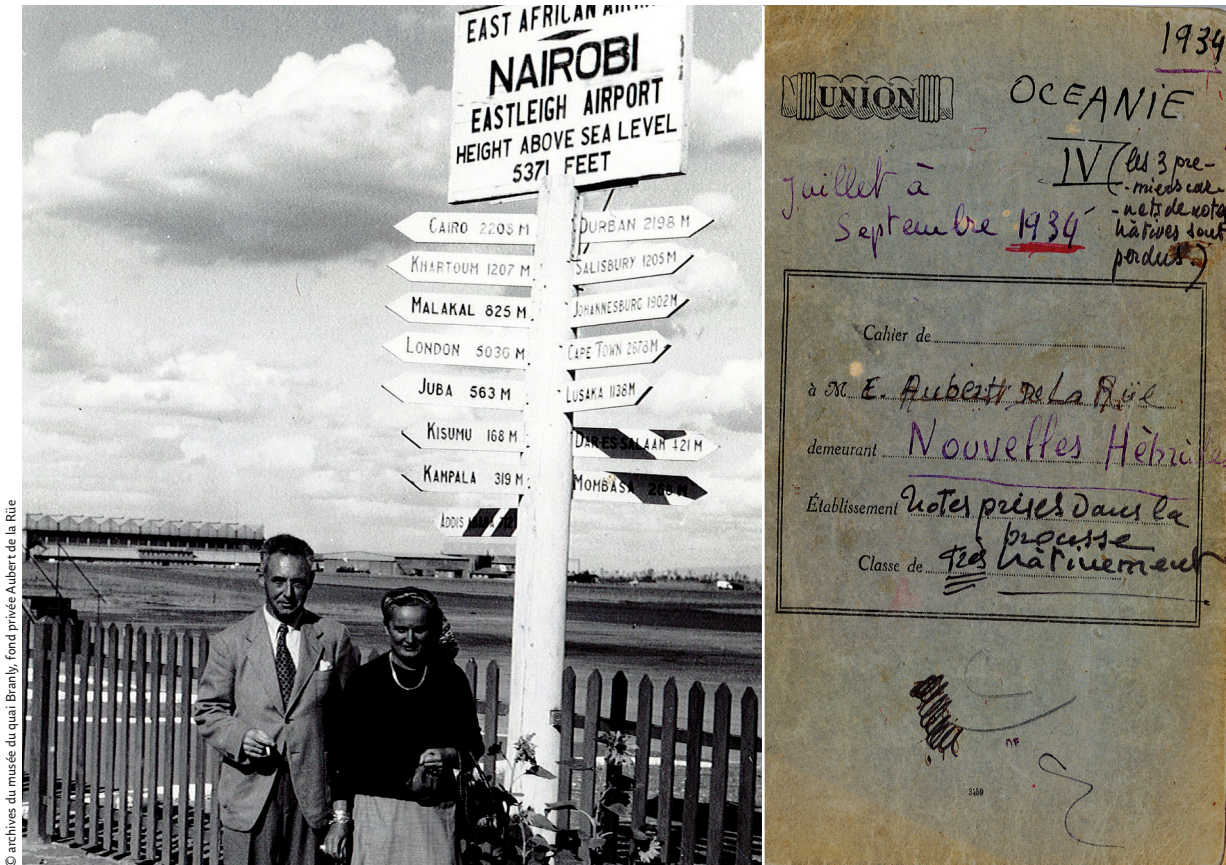 © archives du musée du quai Branly, fond privée Aubert de la Rüe
EAST AFRICAN
NAIROBI
EASTLEIGH AIRPORT
HEIGHT ABOVE SEA LEVEL
5371 FEET
CAIRO 2208 M
KHARTOUM 1207 M
MALAKAL 825 M
LONDON 5030 M
JUBA 563 M
KISUMU 168 M
KAMPALA 319 M
ADDIS ABABA
DURBAN 2198 M
SALISBURY 1205 M
JOHANNESBURG 1902 M
CAPE TOWN 2678 M
LUSAKA 1138 M
DAR-ES-SALAAM 421 M
MOMBASA 268 M
1934
UNION
OCEANIE
IV (les 3 pre-
-miers car-
-nets de notes
hâtives sont
perdus.)
Juillet à
Septembre 1934
Cahier de
à M. E. Aubert de La Rüe
demeurant Nouvelles Hébrides
Établissement Notes prises dans la
brousse
Classe de très hâtivement
3450